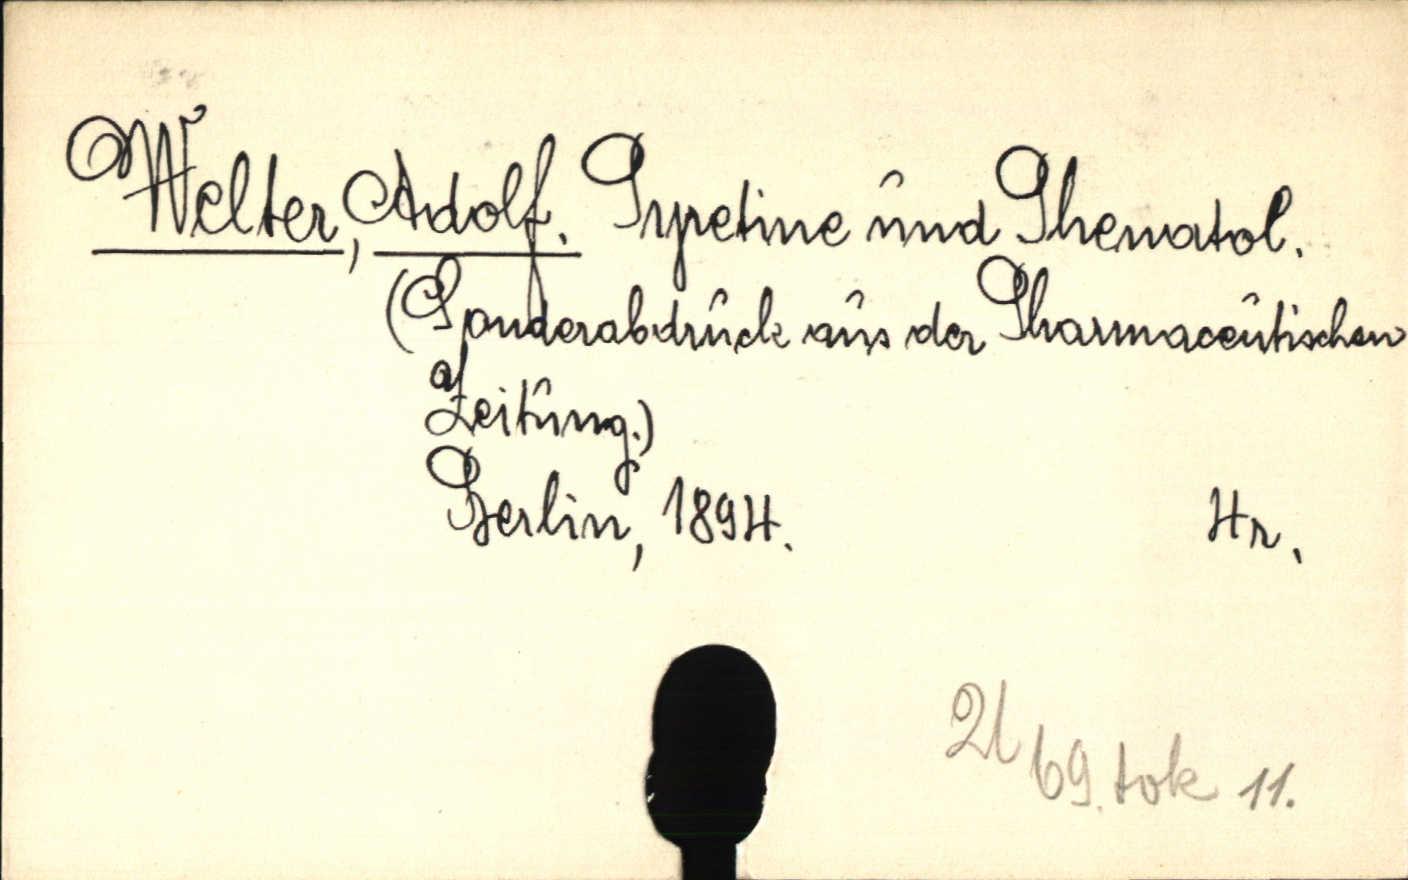 Welter, Adolf. Pyretine und Phenatol.
(Sonderabdruck aus der Pharmaceutischen
Zeitung.)
Berlin, 1894. 4r.
21 69. tok 11.